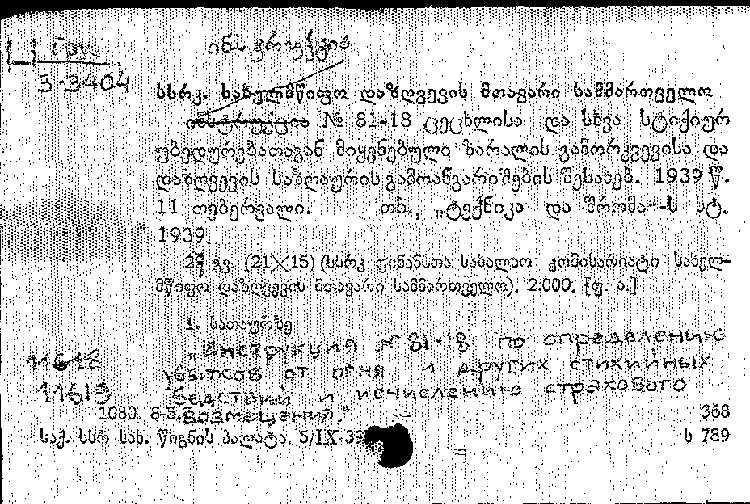 ინსტრუქცია
3-3404
სსრკ. სახელმწიფო დაზღვევის მთავარი სამმართველო
ინსტრუქცია № 81-18 ცეცხლისა და სხვა სტიქიურ
უბედურებათაგან მიყენებული ზარალის გამორკვევისა და
დაზღვევის საზღაურის გამოანგარიშების შესახებ. 1939 წ.
11 თებერვალი. თბ., „ტექნიკა და შრომა“-ს სტ.
1939
24 გვ. (21×15) (სსრკ ფინანსთა სახალხო კომისარიატი სახელ-
მწიფო დაზღვევის მთავარი სამმართველო). 2.000. [უ. ა.]
1. სათაურზე
„Инструкция № 81-18 по определению
убытков от огня и других стихийных
бедствий и исчислению страхового
возмещения.“
11612
11613
1080. 6-3. 368
საქ. სსრ სახ. წიგნის პალატა. 5/IX-39 ს 789